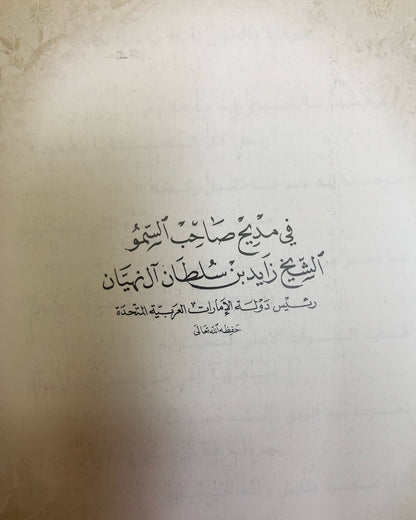 في مديح صاحب السمو
الشيخ زايد بن سلطان آل نهيان
رئيس دولة الإمارات العربية المتحدة
حفظه الله تعالى